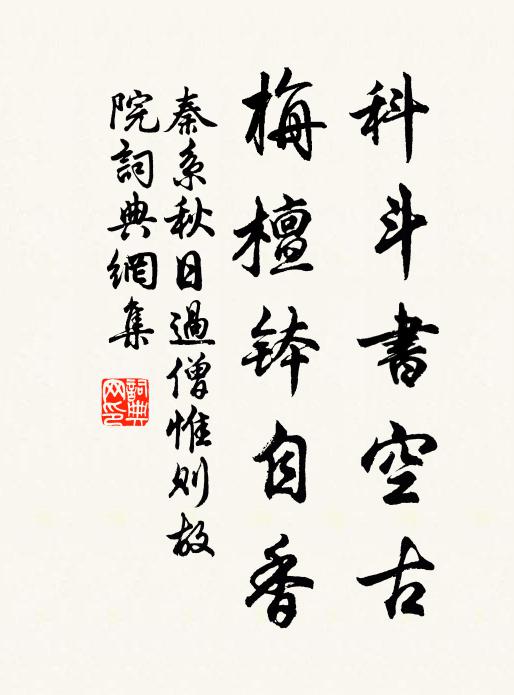 科斗書空古
栴檀鉢自香
秦系秋日過僧惟則故
院詞典網集
詞典
网印